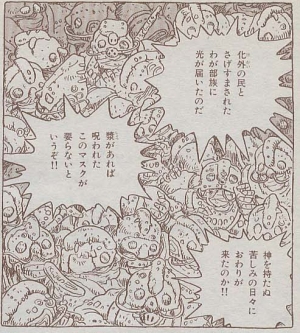 化外の民と
さげすまされた
わが部族に
光が届いたのだ
禁があれば
呪われた
このマスクが
要らないと
いうぞ!!
神を持たぬ
苦しみの日々に
おわりが
来たのか!!